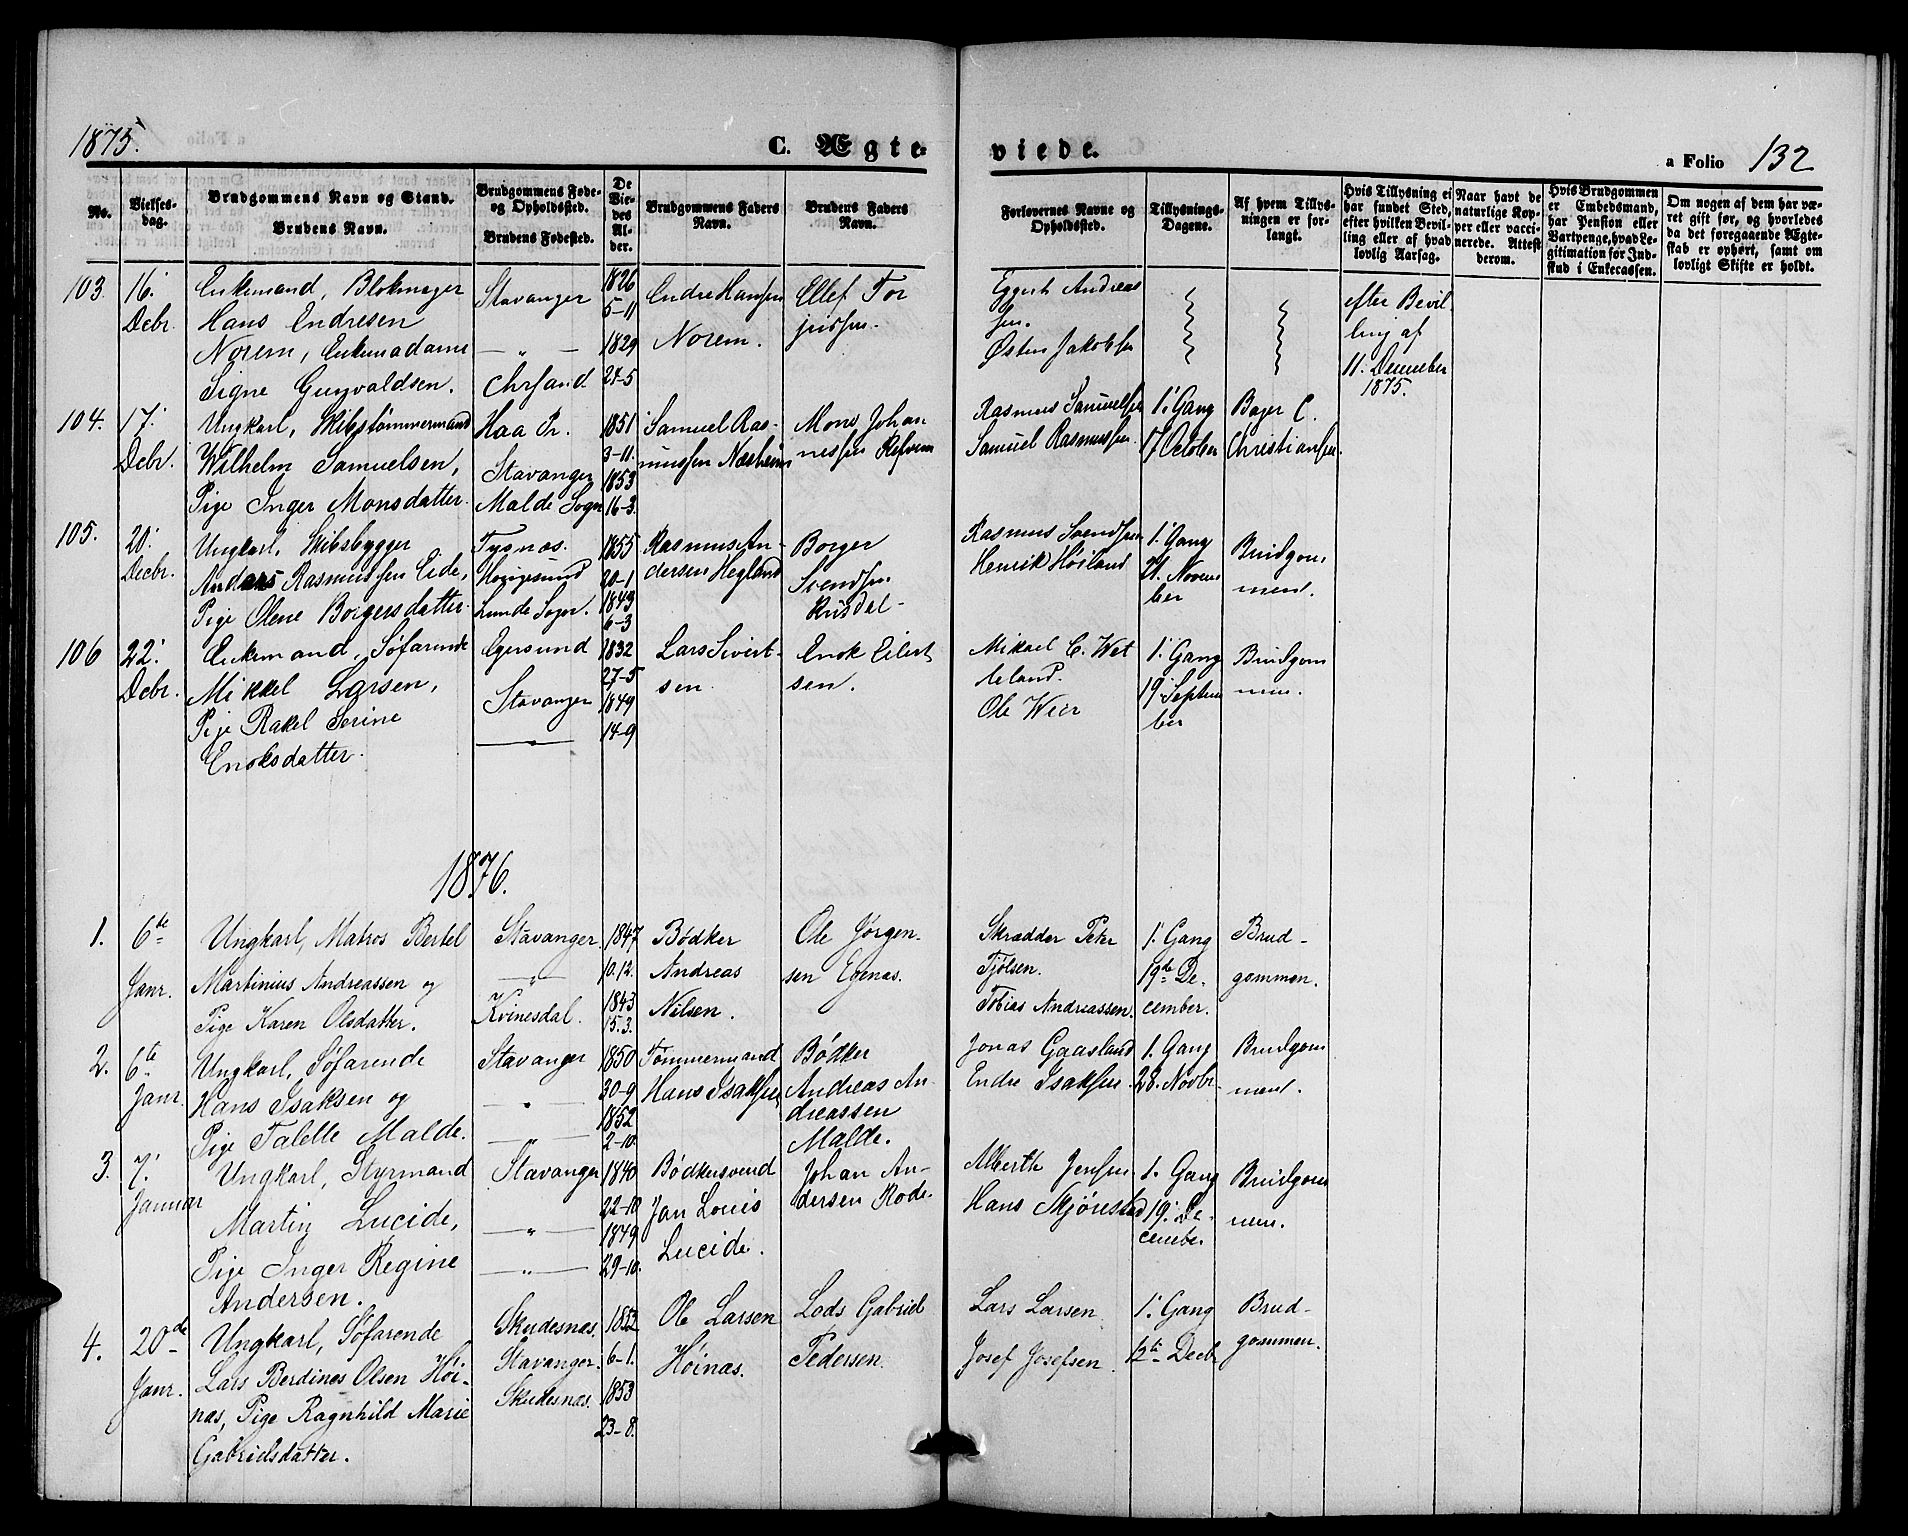 1875.
C. Ægte-
viede.
a Folio 132
No.
Vielses-
dag.
Brudgommens Navn og Stand.
Brudens Navn.
Brudgommens Føde-
og Opholdssted.
Brudens Fødested.
De
Vie-
des
Al-
der.
Brudgommens Faders
Navn.
Brudens Faders
Navn.
Forlovernes Navne og
Opholdssted.
Tillysnings-
Dagene.
Af hvem Tillys-
ningen er for-
langt.
Hvis Tillysning ei
har fundet Sted,
efter hvilken Bevil-
ling eller af hvad
lovlig Aarsag.
Naar havt de
naturlige Kop-
per eller vacci-
nerede. Attest
derom.
Hvis Brudgommen
er Embedsmand,
har Pension eller
Vartpenge, hvad Le-
gitimation for Ind-
skud i Enkecassen.
Om nogen af dem har væ-
ret gift før, og hvorledes
da det foregaaende Ægte-
skab er ophørt, samt om
lovligt Skifte er holdt.
103.
16.
Debr.
Enkemand, Blokmager
Hans Endresen
Norem, Enkemadame
Signe Gunvaldsen.
Stavanger
— " —
Chrsand
1826
5-11
1829
24-5
Endre Hansen
Norem.
Ellef Tor
jussen.
Eggert Andreas
sen.
Østen Jakobsen
efter Bevil
ling af
11. December
1875.
104.
17.
Debr.
Ungkarl, Skibstømmermand
Wilhelm Samuelsen,
Pige Inger Monsdatter.
Haa Pr.
Stavanger
Malde Sogn
1851
3-11.
1853
16-3
Samuel Ras-
mussen Næsheim
Mons Johan
nessen Refvem
Rasmus Samuelsen
Samuel Rasmussen.
1. Gang
17 October
Bager C.
Christiansen.
105.
20.
Decbr.
Ungkarl, Skibsbygger
Anders Rasmussen Eide,
Pige Olene Borgersdatter.
Tysnæs.
Haugesund
Lunde Sogn.
1855
20-1
1843
6-3
Rasmus An-
dersen Hegland
Borger
Svendsen
Rusdal-
Rasmus Svendsen
Henrik Høiland
1. Gang
21. Novem
ber
Brudgom
men.
106
22.
Debr.
Enkemand, Søfarende
Mikkel Larsen,
Pige Rakel Serine
Enoksdatter.
Egersund
Stavanger
— " —
1832
27-5
1849
14-9
Lars Sivert-
sen.
Enok Eilert
sen.
Mikael C. Wet
teland.
Ole Weir
1. Gang
19. Septem
ber
Brudgom
men.
1876.
1.
6te
Janr.
Ungkarl, Matros Bertel
Martinius Andreassen og
Pige Karen Olsdatter.
Stavanger.
— " —
Kvinesdal.
1847
10.12.
1843
15.3.
Bødker
Andreas
Nilsen.
Ole Jørgen-
sen Egenæs.
Skrædder Peter
Tjølsen.
Tobias Andreassen.
1. Gang
19de De-
cember.
Brud-
gommen.
2.
6te
Janr.
Ungkarl, Søfarende
Hans Isaksen og
Pige Talette Malde.
Stavanger
— " —
— " —
1850
30-9
1852
2-10.
Tømmermand
Hans Isaksen
Bødker
Andreas An-
dreassen
Malde.
Jonas Gaasland
Endre Isaksen.
1. Gang
28. Novbr.
Brudgom
men.
3.
7.
Januar
Ungkarl, Styrmand
Martin Lucide,
Pige Inger Regine
Andersen.
Stavanger
— " —
— " —
1840
22-10
1849
29-10.
Bødkersvend
Jan Louis
Lucide.
Johan An-
dersen Rode.
Alberth Jensen
Hans Skjørestad
1. Gang
19. De-
cember.
Brudgom
men.
4.
20de
Janr.
Ungkarl, Søfarende
Lars Berdines Olsen Høi-
næs, Pige Ragnhild Marie
Gabrielsdatter.
Skudesnæs.
Stavanger.
Skudesnæs.
1852
6-1.
1853
23-8.
Ole Larsen
Høinæs.
Lods Gabriel
Pedersen.
Lars Larsen
Josef Josefsen.
1. Gang
12te Decbr
Brud-
gommen.